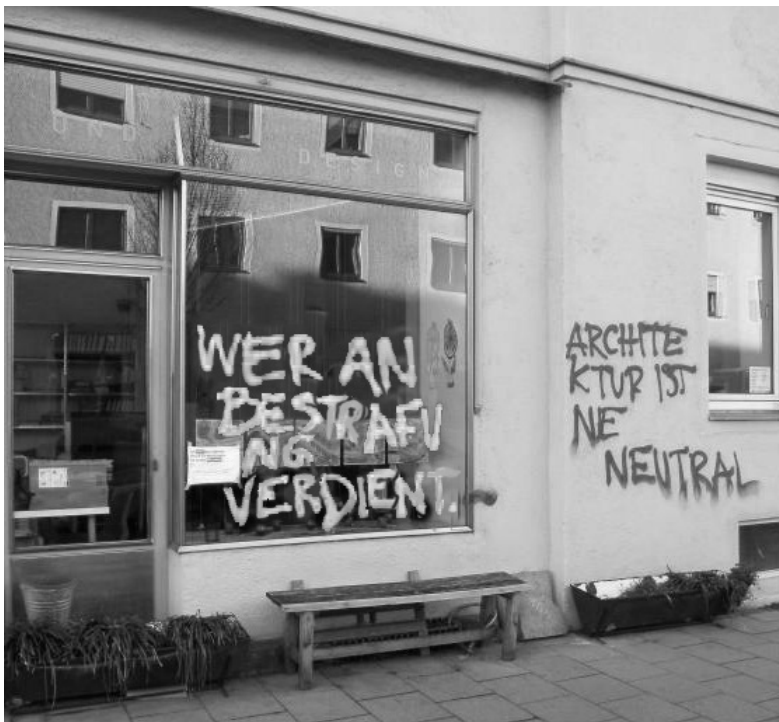 UND
DESIGN
WER AN
BESTRAFU
NG
VERDIENT.
ARCHITE
KTUR IST
NE
NEUTRAL